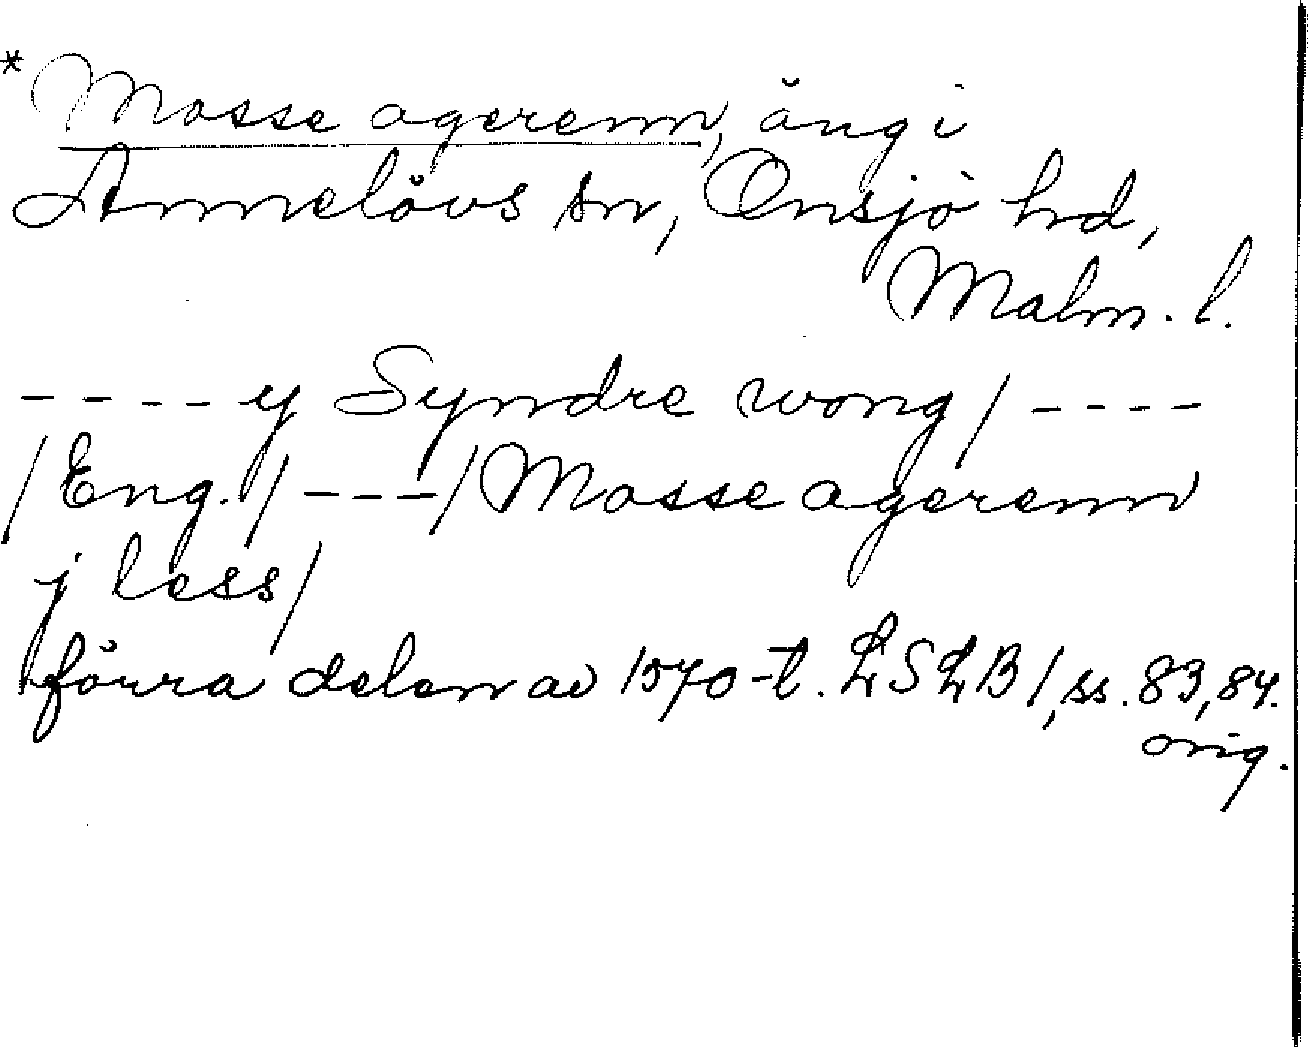 * Mosse agerenn, äng i
Annelövs sn, Onsjö hd,
Malm. l.
---- y Syndre wong/ ----
/Eng./ ---/ Mosse agerenn
j less/
förra delen av 1570-t. LSLB 1, ss. 83, 84.
orig.